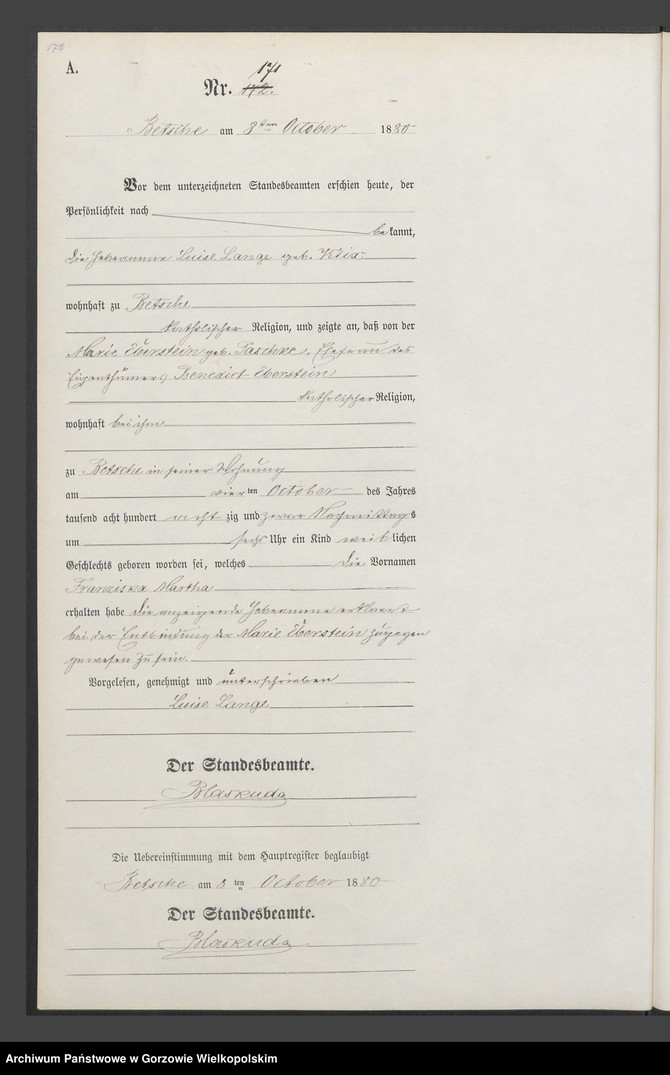 172
A.
Nr. 171
172.
Betsche am 8ten October 1880
Vor dem unterzeichneten Standesbeamten erschien heute, der
Persönlichkeit nach
bekannt,
die Hebeamme Luise Lange geb. Klix
wohnhaft zu Betsche
katholischer Religion, und zeigte an, daß von der
Marie Eberstein geb. Paschke, Ehefrau des
Eigenthümers Benedict Eberstein
katholischer Religion,
wohnhaft bei ihm
zu Betsche in seiner Wohnung
am vierten October des Jahres
tausend acht hundert achtzig und zwar Nachmittags
um sechs Uhr ein Kind weiblichen
Geschlechts geboren worden sei, welches die Vornamen
Franziska Martha
erhalten habe die anzeigende Hebeamme erklaert
bei der Entbindung der Marie Eberstein zugegen
gewesen zu sein.
Vorgelesen, genehmigt und unterschrieben
Luise Lange
Der Standesbeamte.
Blaskuda
Die Uebereinstimmung mit dem Hauptregister beglaubigt
Betsche am 8ten October 1880
Der Standesbeamte.
Blaskuda
Archiwum Państwowe w Gorzowie Wielkopolskim